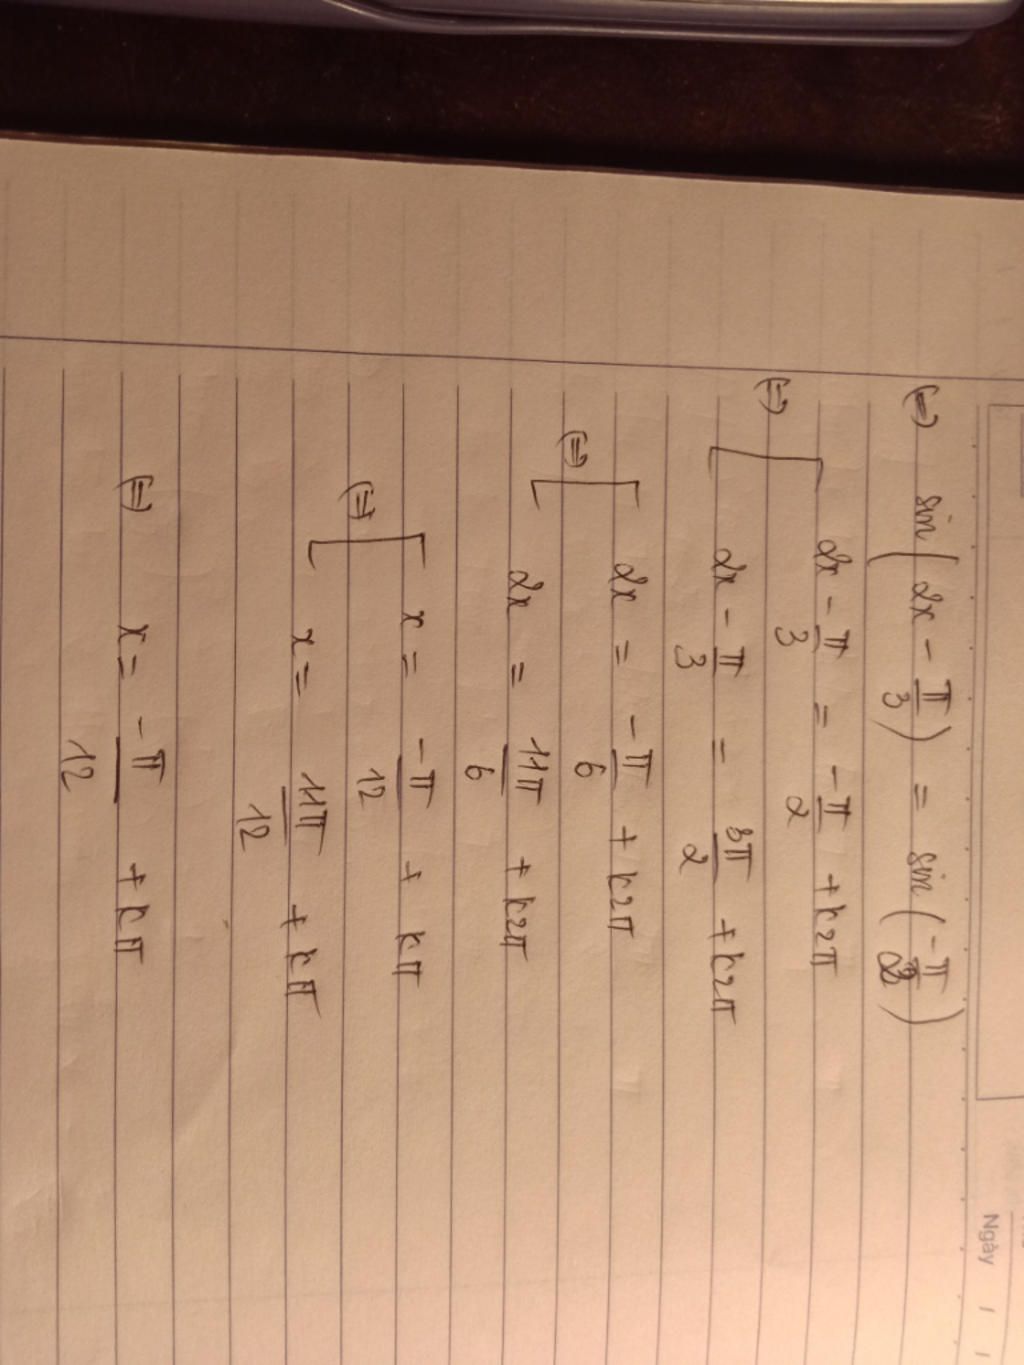 Ngày / /
(=) sin(2x - π/3) = sin(-π/2)
(=) [ 2x - π/3 = -π/2 + k2π
2x - π/3 = 3π/2 + k2π
(=) [ 2x = -π/6 + k2π
2x = 11π/6 + k2π
(=) [ x = -π/12 + kπ
x = 11π/12 + kπ
(=) x = -π/12 + kπ